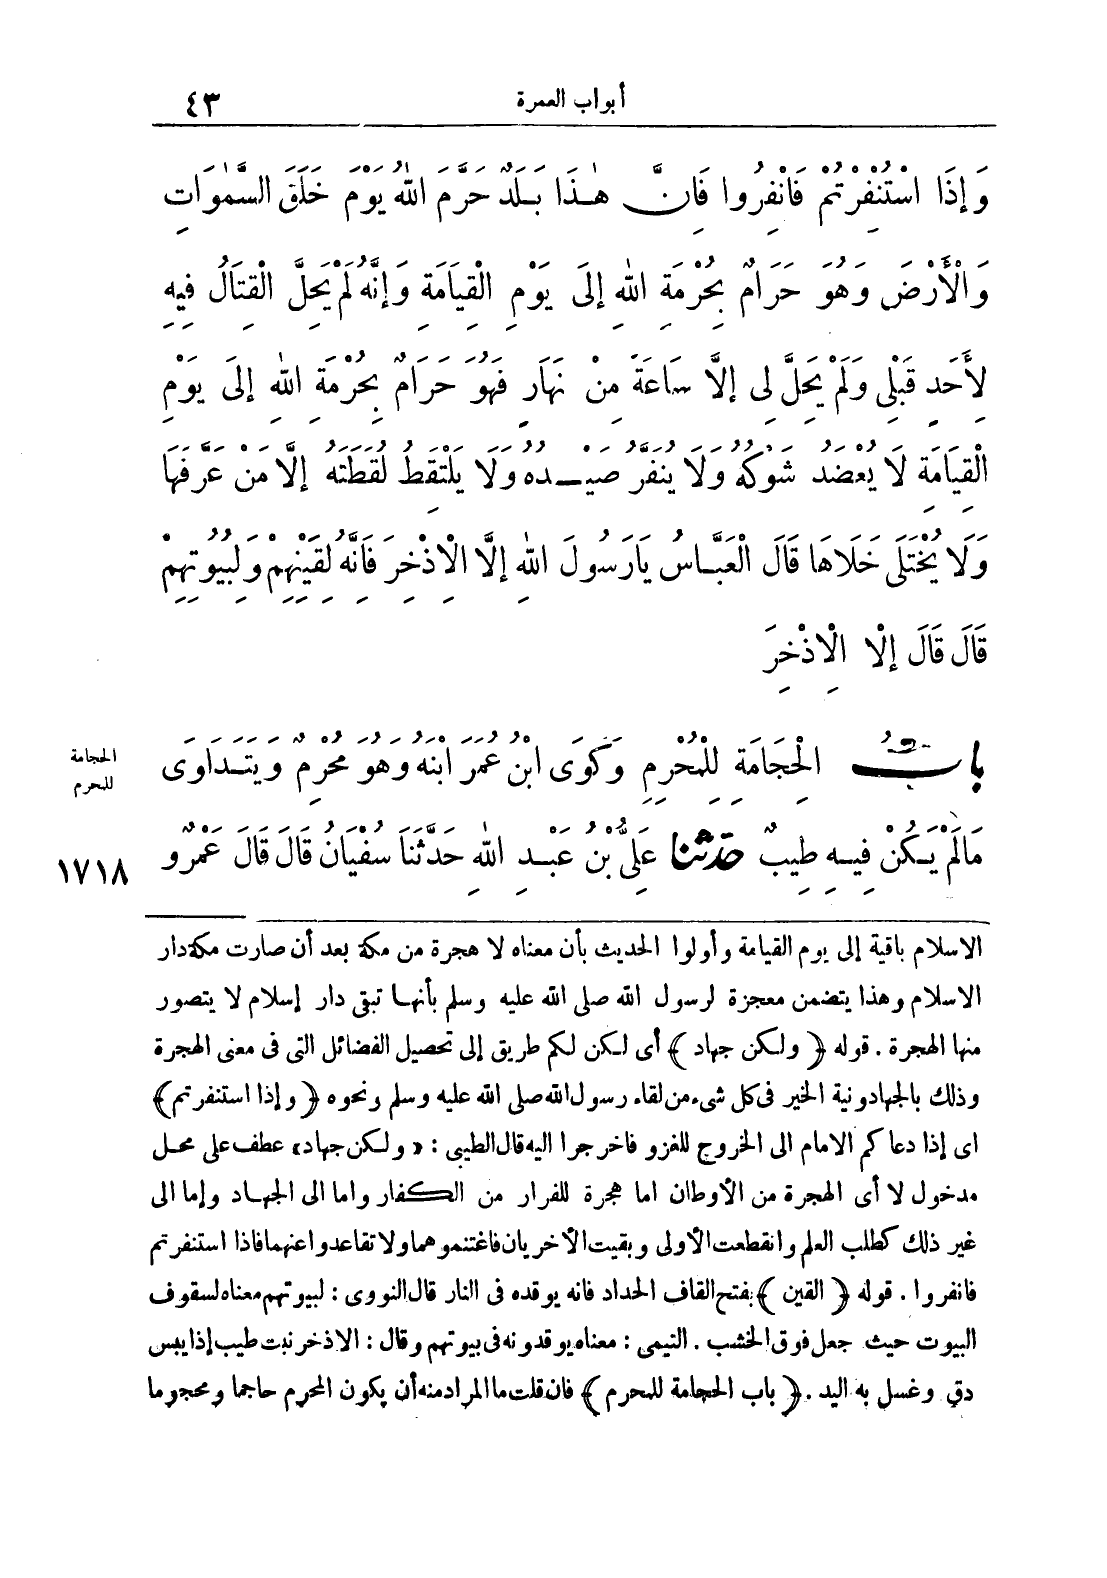 أبواب العمرة ٤٣
وَإِذَا اسْتُنْفِرْتُمْ فَانْفِرُوا فَإِنَّ هٰذَا بَلَدٌ حَرَّمَ اللهُ يَوْمَ خَلَقَ السَّمٰوَاتِ
وَالْأَرْضَ وَهُوَ حَرَامٌ بِحُرْمَةِ اللهِ إِلَى يَوْمِ الْقِيَامَةِ وَإِنَّهُ لَمْ يَحِلَّ الْقِتَالُ فِيهِ
لِأَحَدٍ قَبْلِي وَلَمْ يَحِلَّ لِي إِلَّا سَاعَةً مِنْ نَهَارٍ فَهُوَ حَرَامٌ بِحُرْمَةِ اللهِ إِلَى يَوْمِ
الْقِيَامَةِ لَا يُعْضَدُ شَوْكُهُ وَلَا يُنَفَّرُ صَيْدُهُ وَلَا يَلْتَقِطُ لُقَطَتَهُ إِلَّا مَنْ عَرَّفَهَا
وَلَا يُخْتَلَى خَلَاهَا قَالَ الْعَبَّاسُ يَارَسُولَ اللهِ إِلَّا الْإِذْخِرَ فَإِنَّهُ لِقَيْنِهِمْ وَلِبُيُوتِهِمْ
قَالَ قَالَ إِلَّا الْإِذْخِرَ
بابُ الْحِجَامَةِ لِلْمُحْرِمِ وَكَوَى ابْنُ عُمَرَ ابْنَهُ وَهُوَ مُحْرِمٌ وَيَتَدَاوَى
الحجامة
للمحرم
مَالَمْ يَكُنْ فِيهِ طِيبٌ حدثنا عَلِيُّ بْنُ عَبْدِ اللهِ حَدَّثَنَا سُفْيَانُ قَالَ قَالَ عَمْرٌو
١٧١٨
الاسلام باقية إلى يوم القيامة وأولوا الحديث بأن معناه لا هجرة من مكة بعد أن صارت مكة دار
الاسلام وهذا يتضمن معجزة لرسول الله صلى الله عليه وسلم بأنها تبقى دار إسلام لا يتصور
منها الهجرة . قوله ﴿ ولكن جهاد ﴾ أى لكن لكم طريق إلى تحصيل الفضائل التى فى معنى الهجرة
وذلك بالجهاد ونية الخير فى كل شىء من لقاء رسول الله صلى الله عليه وسلم ونحوه ﴿ وإذا استنفرتم ﴾
اى إذا دعا كم الامام الى الخروج للغزو فاخرجوا اليه قال الطيبى : « ولكن جهاد » عطف على محل
مدخول لا أى الهجرة من الأوطان اما هجرة للفرار من الكفار واما الى الجهاد وإما الى
غير ذلك كطلب العلم وانقطعت الأولى وبقيت الأخريان فاغتنموهما ولا تقاعدوا عنهما فاذا استنفرتم
فانفروا . قوله ﴿ القين ﴾ بفتح القاف الحداد فانه يوقده فى النار قال النووى : لبيوتهم معناه لسقوف
البيوت حيث جعل فوق الخشب . التيمى : معناه يوقدونه فى بيوتهم وقال : الاذخر نبت طيب إذا يبس
دق وغسل به اليد . ﴿ باب الحجامة للمحرم ﴾ فان قلت ما المراد منه أن يكون المحرم حاجما ومحجوما